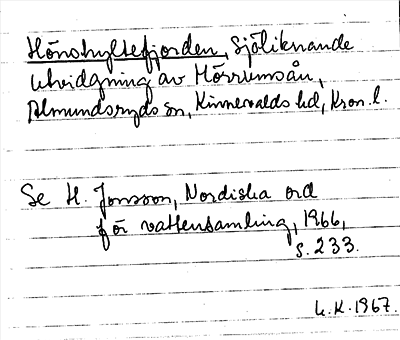 Hönshyltefjorden, sjöliknande
utvidgning av Mörrumsån,
Almundsryds sn, Kinnevalds hd, Kron. l.
Se H. Jonsson, Nordiska ord
för vattensamling, 1966,
s. 233.
L.K. 1967.